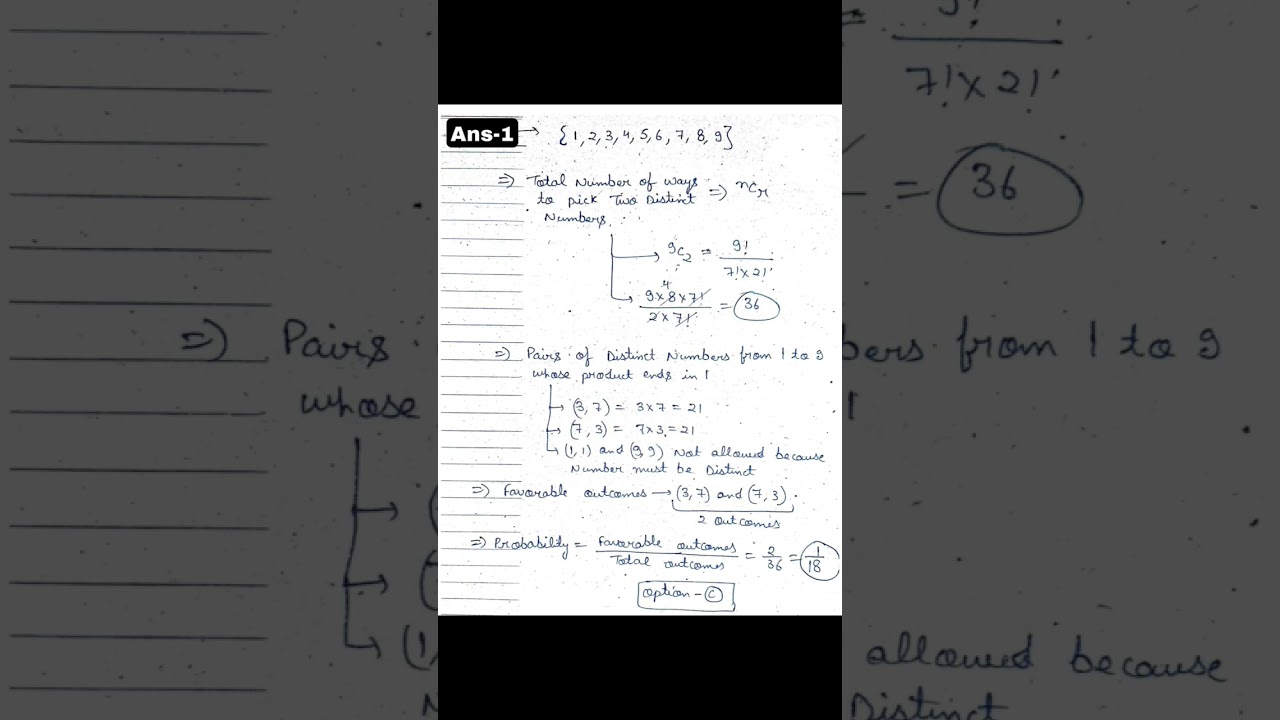 Ans-1 → {1, 2, 3, 4, 5, 6, 7, 8, 9}
⇒ Total Number of ways ⇒ nCr
to pick Two Distinct
Numbers.
9C2 = 9! / 7! × 2!
4
9 × 8 × 7! / 2 × 7! = 36
⇒ Pairs of Distinct Numbers from 1 to 9
whose product ends in 1
→ (3, 7) = 3 × 7 = 21
→ (7, 3) = 7 × 3 = 21
→ (1, 1) and (9, 9) Not allowed because
Number must be Distinct
⇒ Favorable outcomes → (3, 7) and (7, 3).
2 outcomes
⇒ Probability = Favorable outcomes / Total outcomes = 2/36 = 1/18
Option - C
9!
7! × 2!
= 36
⇒ Pairs
bers from 1 to 9
whose
1
(1,
allowed because
Distinct